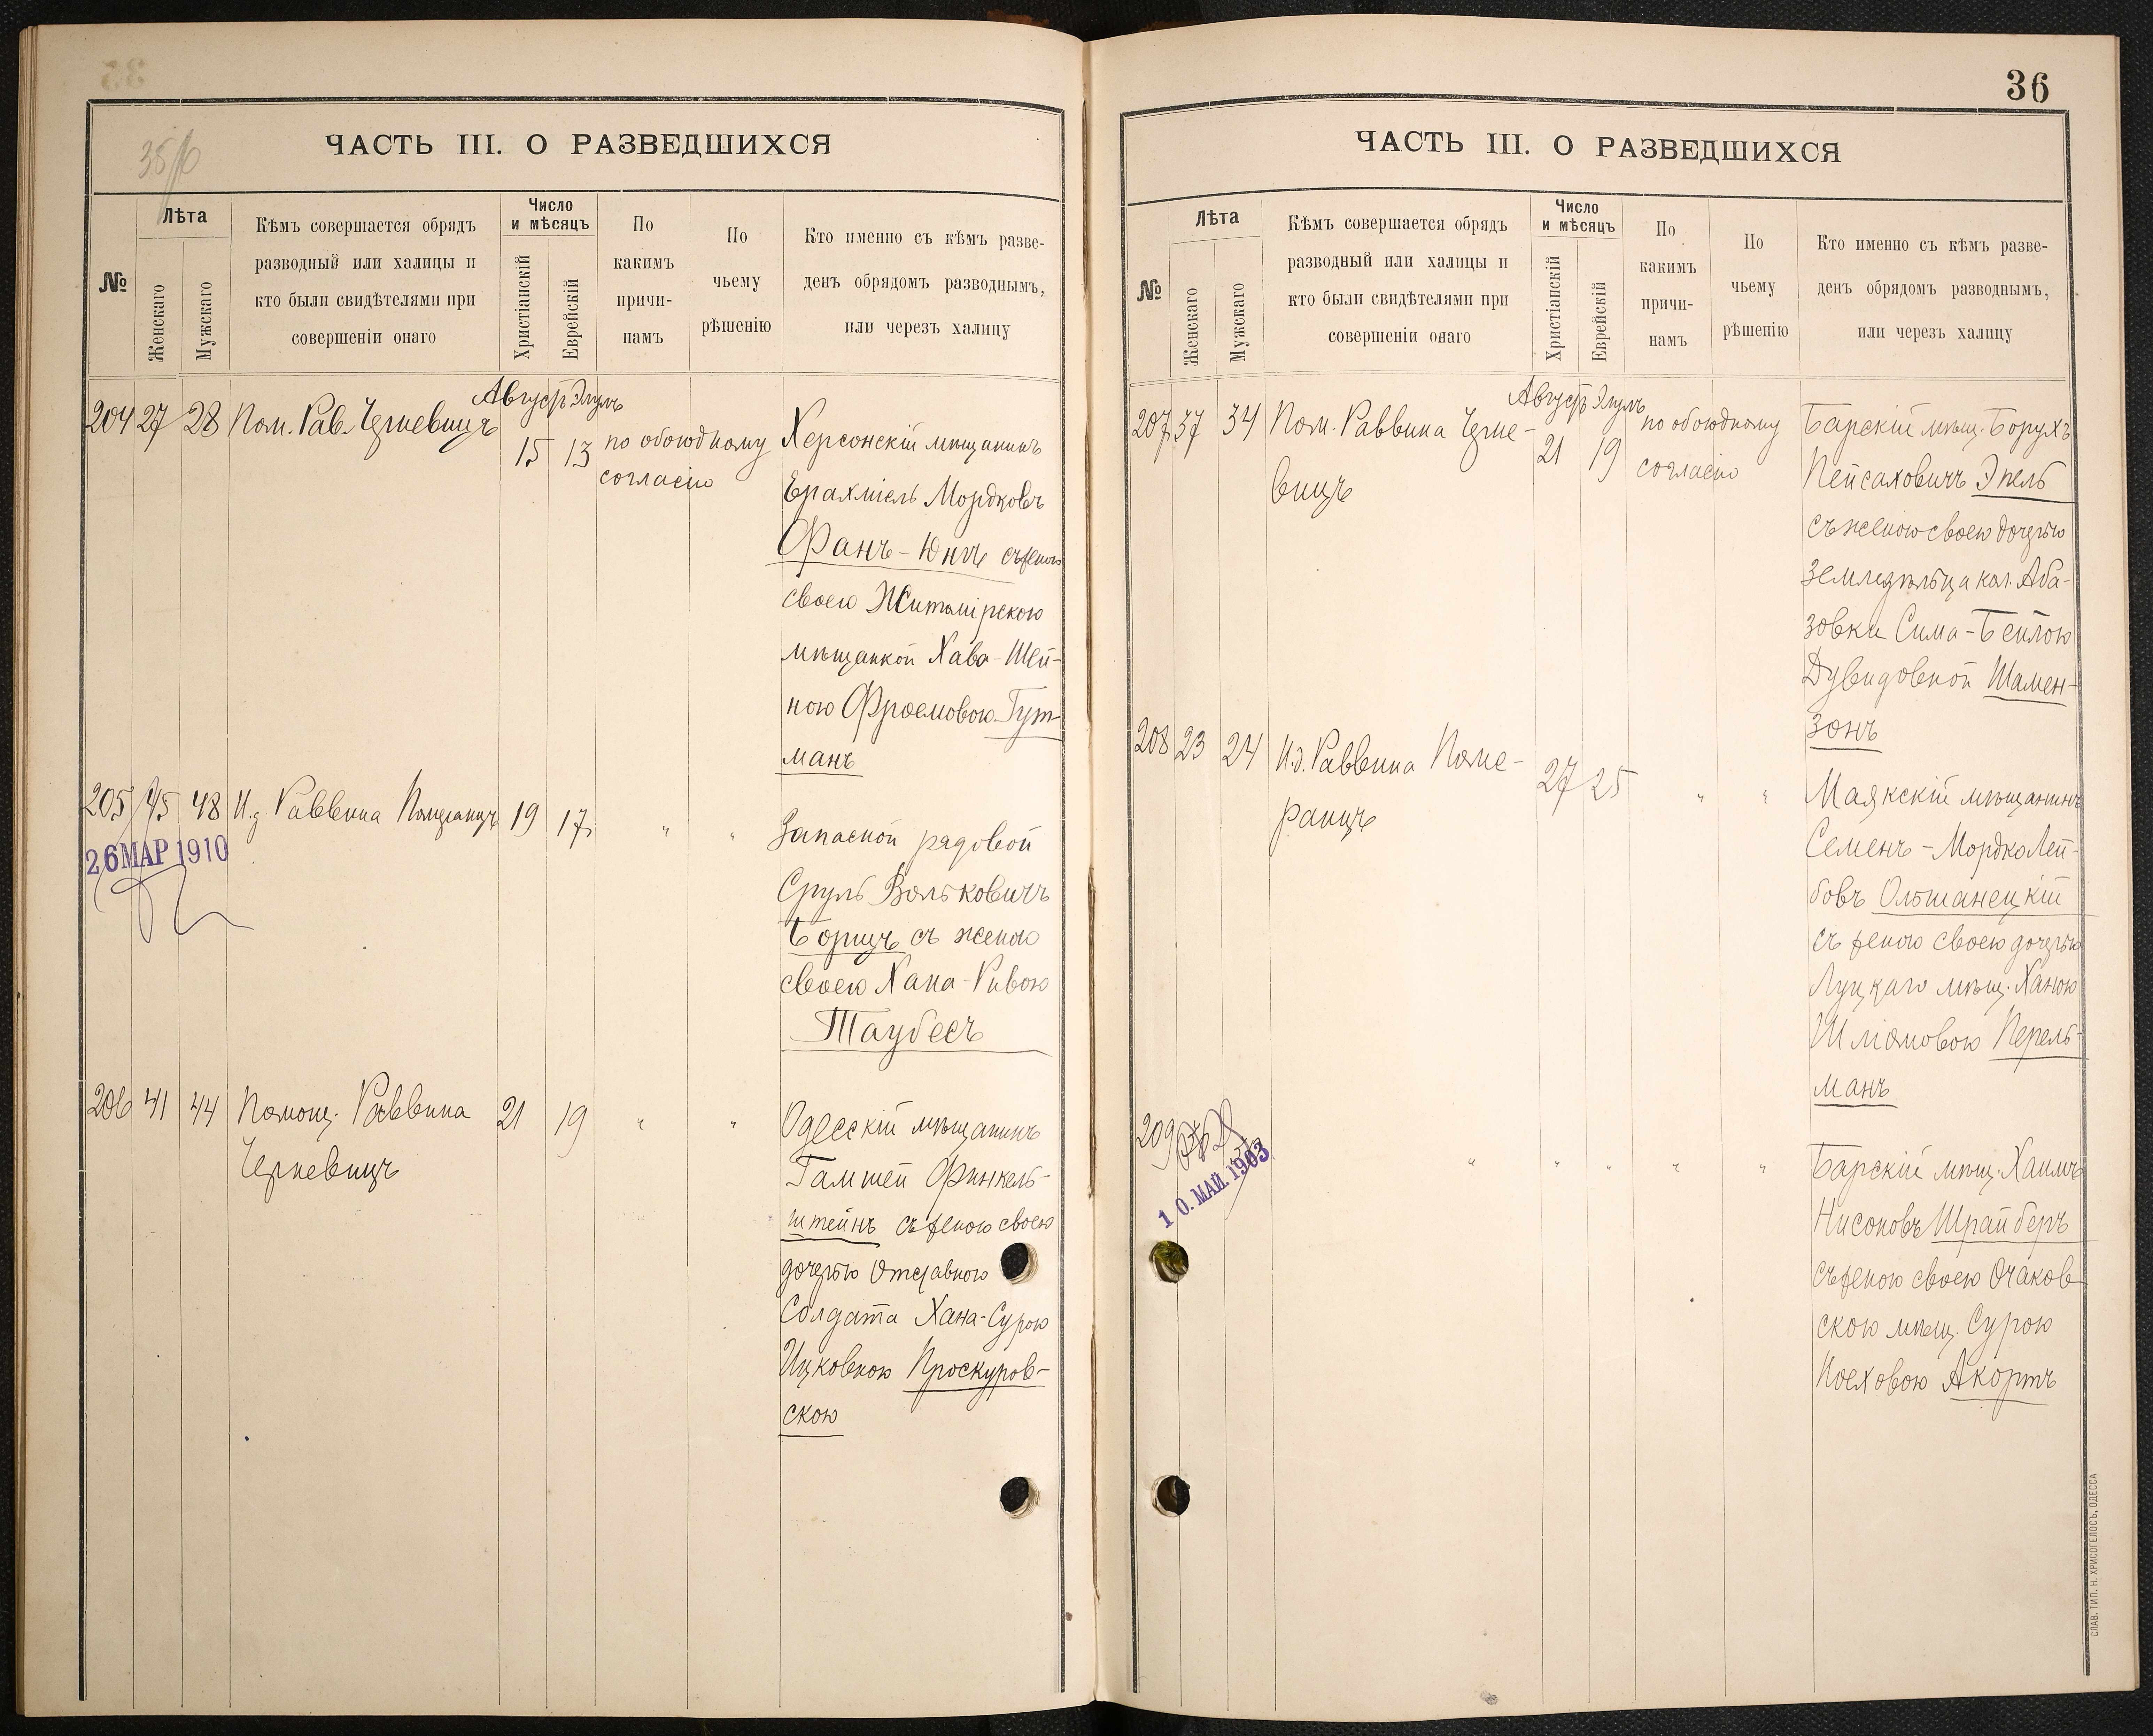 ЧАСТЬ III. О РАЗВЕДШИХСЯ
№
Лѣта
Женскаго
Мужскаго
Кѣмъ совершается обрядъ
разводный или халицы и
кто были свидѣтелями при
совершеніи онаго
Число
и мѣсяцъ
Христіанскій
Еврейскій
По
какимъ
причи-
намъ
По
чьему
рѣшенію
Кто именно съ кѣмъ разве-
денъ обрядомъ разводнымъ,
или черезъ халицу
204 27 28 Пом. Рав. Черневицъ
Августъ Элулъ
15 13
по обоюдному
согласію
Херсонскій мѣщанинъ
Ерахміель Мордковъ
Фанъ-Юнгъ съ женою
своею Житомірскою
мѣщанкой Хава-Шей-
ною Фроемовою Гут-
манъ
205 45 48 И.д. Раввина Померанцъ 19 17 " "
26 МАР 1910
Запасной рядовой
Сруль Вольковичъ
Борщъ съ женою
своею Хана-Ривою
Таубесъ
206 41 44 Помощ. Раввина 21 19 " "
Черневицъ
Одесскій мѣщанинъ
Гамшей Финкель-
штейнъ съ женою своею
дочерью Отставного
Солдата Хана-Сурою
Ицковною Проскуров-
скою
36
ЧАСТЬ III. О РАЗВЕДШИХСЯ
№
Лѣта
Женскаго
Мужскаго
Кѣмъ совершается обрядъ
разводный или халицы и
кто были свидѣтелями при
совершеніи онаго
Число
и мѣсяцъ
Христіанскій
Еврейскій
По
какимъ
причи-
намъ
По
чьему
рѣшенію
Кто именно съ кѣмъ разве-
денъ обрядомъ разводнымъ,
или черезъ халицу
207 37 34 Пом. Раввина Черне-
вицъ
Августъ Элулъ
21 19
по обоюдному
согласію
Барскій мѣщ. Борухъ
Пейсаховичъ Эпель
съ женою своею дочерью
земледѣльца кол. Аба-
зовки Сима-Бейлою
Дувидовной Шамен-
зонъ
208 23 24 И.д. Раввина Поме-
ранцъ
27 25 " "
Маякскій мѣщанинъ
Семенъ-Мордко Лей-
бовъ Ольшанецкій
съ женою своею дочерью
Луцкаго мѣщ. Ханою
Шліомовою Перель-
манъ
209
10. МАЙ. 1903
" " " " "
Барскій мѣщ. Хаимъ
Нисоновъ Шрайберъ
съ женою своею Очаков-
скою мѣщ. Сурою
Поеховою Акортъ
СЛАВ. ТИП. Н. ХРИСОГЕЛОСЪ, ОДЕССА